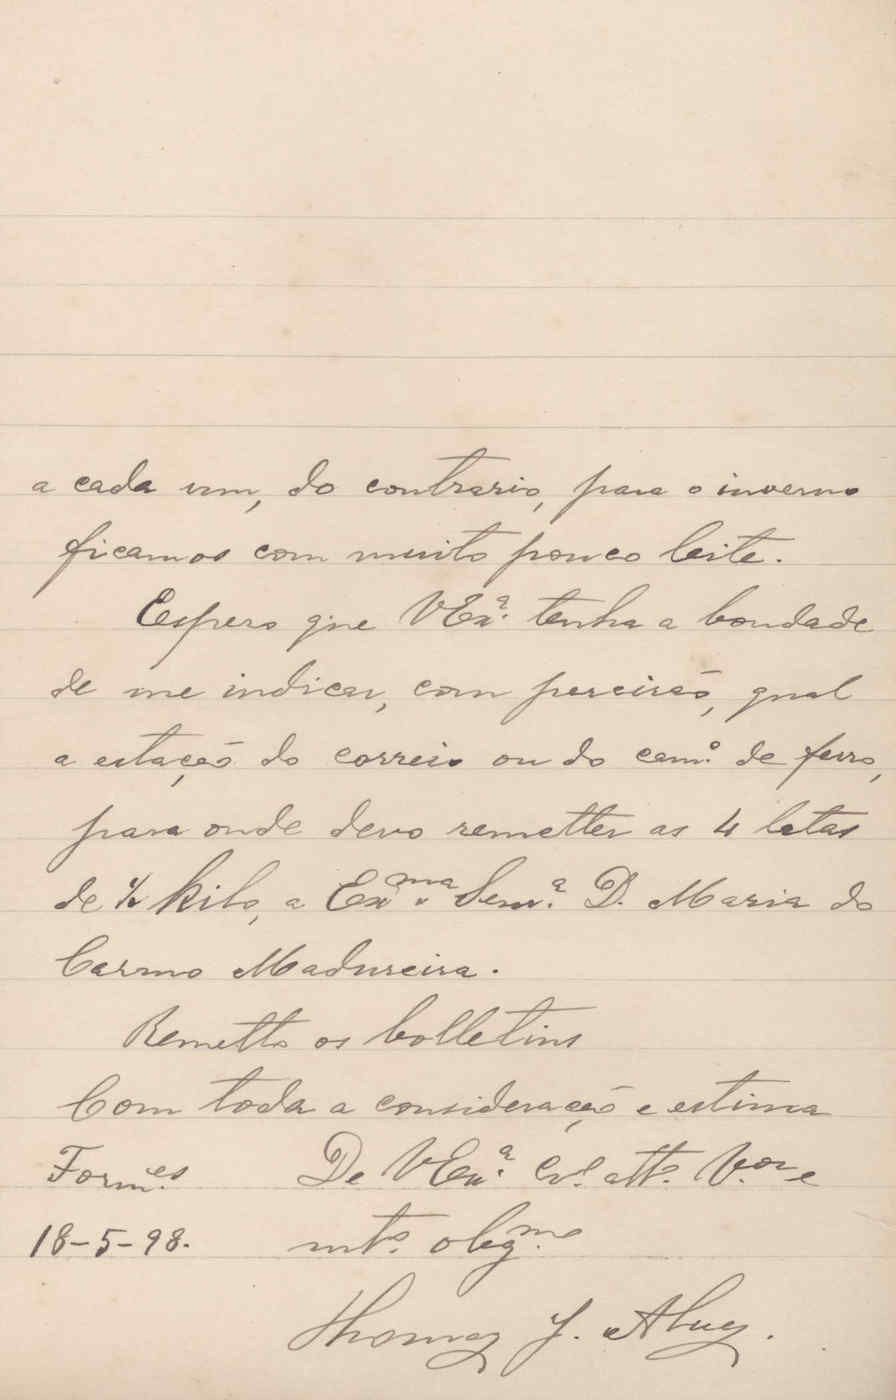 a cada um, do contrario, para o inverno
ficamos com muito pouco leite.
Espero que VExª. tenha a bondade
de me indicar, com percisão, qual
a estação do correio ou do camº. de ferro,
para onde devo remetter as 4 latas
de ½ kilo, a Exma. Senrª. D. Maria do
Carmo Madureira.
Remetto os bolletins
Com toda a consideração e estima
Formes. De VExª. Crº. attº. V.or e
18-5-98. mtº. obrgmo.
Thomaz J.